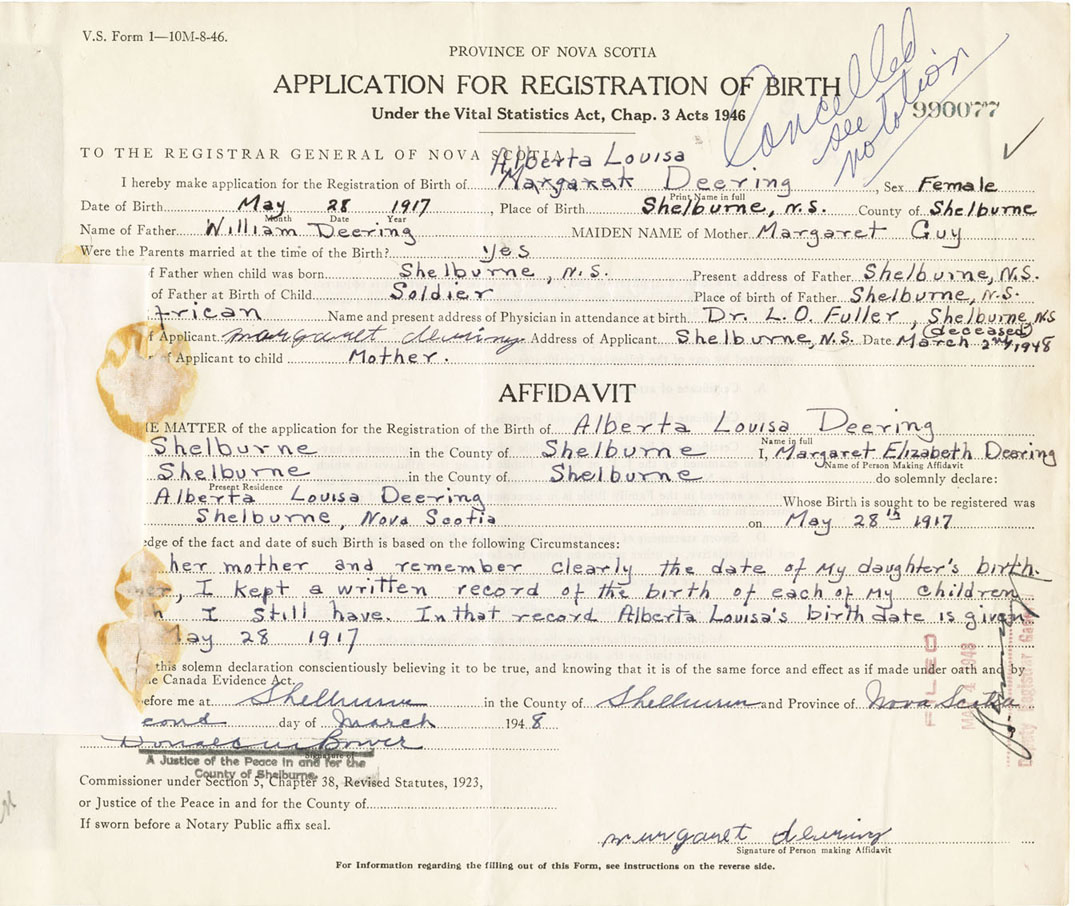 V.S. Form 1—10M-8-46.
PROVINCE OF NOVA SCOTIA
APPLICATION FOR REGISTRATION OF BIRTH
Under the Vital Statistics Act, Chap. 3 Acts 1946
Cancelled
see
notation
990077
TO THE REGISTRAR GENERAL OF NOVA SCOTIA
Alberta Louisa
I hereby make application for the Registration of Birth of Margaret Deering, Sex Female
Print Name in full
Date of Birth May 28 1917, Place of Birth Shelburne, N.S. County of Shelburne
Month Date Year
Name of Father William Deering MAIDEN NAME of Mother Margaret Guy
Were the Parents married at the time of the Birth? Yes
f Father when child was born Shelburne, N.S. Present address of Father Shelburne, N.S.
of Father at Birth of Child Soldier Place of birth of Father Shelburne, N.S.
frican Name and present address of Physician in attendance at birth Dr. L.O. Fuller, Shelburne, N.S
(deceased)
f Applicant margaret deering Address of Applicant Shelburne, N.S. Date March 2nd, 1948
of Applicant to child Mother.
AFFIDAVIT
E MATTER of the application for the Registration of the Birth of Alberta Louisa Deering
Name in full
Shelburne in the County of Shelburne I, Margaret Elizabeth Deering
Name of Person Making Affidavit
Shelburne in the County of Shelburne do solemnly declare:
Present Residence
Alberta Louisa Deering Whose Birth is sought to be registered was
Shelburne, Nova Scotia on May 28th 1917
edge of the fact and date of such Birth is based on the following Circumstances:
her mother and remember clearly the date of my daughter's birth.
, I kept a written record of the birth of each of my children
I still have. In that record Alberta Louisa's birth date is given
May 28 1917
this solemn declaration conscientiously believing it to be true, and knowing that it is of the same force and effect as if made under oath and by
e Canada Evidence Act.
efore me at Shelburne in the County of Shelburne and Province of Nova Scotia
cond day of March 1948
Donald M Bower
Signature of
A Justice of the Peace in and for the
County of Shelburne
Commissioner under Section 5, Chapter 38, Revised Statutes, 1923,
or Justice of the Peace in and for the County of
If sworn before a Notary Public affix seal.
FILED
1948
Deputy Registrar
margaret deering
Signature of Person making Affidavit
For Information regarding the filling out of this Form, see instructions on the reverse side.